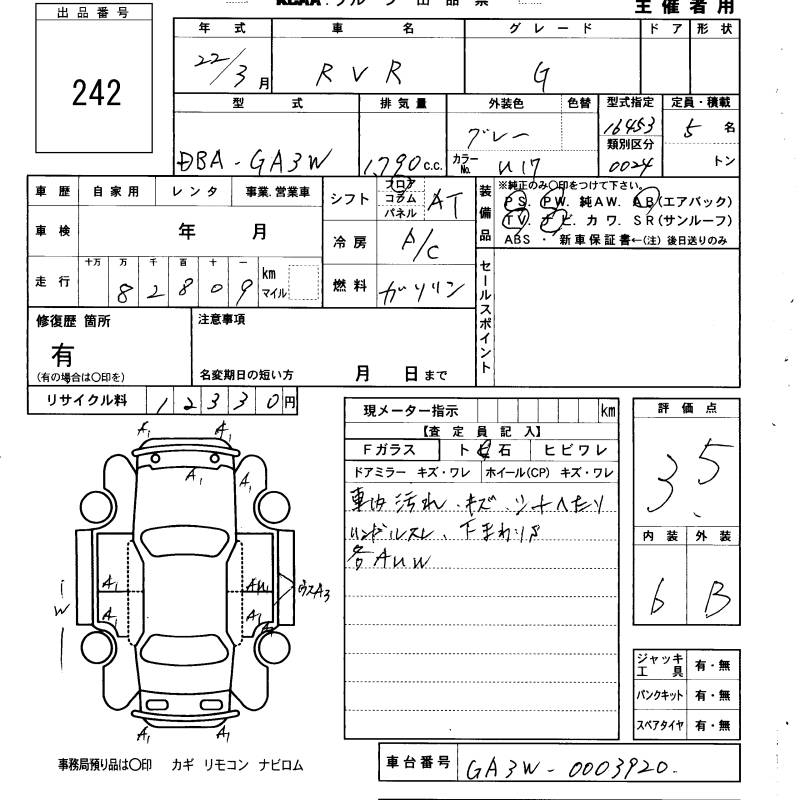 主催者用
出品番号
242
年式 車名 グレード ドア 形状
22/3月 RVR G
型式 排気量 外装色 色替 型式指定 定員・積載
DBA-GA3W 1,790c.c. グレー 16453 5名
カラーNo. U17 類別区分 0024 トン
車歴 自家用 レンタ 事業.営業車
車検 年 月
走行 十万 万 千 百 十 一
82809 km マイル
シフト フロア コラム パネル AT
冷房 A/C
燃料 ガソリン
装備品
※純正のみ〇印をつけて下さい。
PS. PW. 純AW. AB(エアバック)
TV. ナビ. カワ. SR(サンルーフ)
ABS ・ 新車保証書←(注) 後日送りのみ
セールスポイント
修復歴 箇所
有
(有の場合は〇印を)
注意事項
名変期日の短い方 月 日まで
リサイクル料 12330円
現メーター指示 km
【査定員記入】
Fガラス ト石 ヒビワレ
ドアミラー キズ・ワレ ホイール(CP) キズ・ワレ
車内汚れ.キズ シートヘたり
ハンドルスレ、下まわりサ
各AUW
評価点
3.5
内装 外装
6 B
ジャッキ工具 有・無
パンクキット 有・無
スペアタイヤ 有・無
A1 A1
A1 A1
A1 AU1
W A1 A1
A3
A1 A1
事務局預り品は〇印 カギ リモコン ナビロム
車台番号 GA3W-0003920.